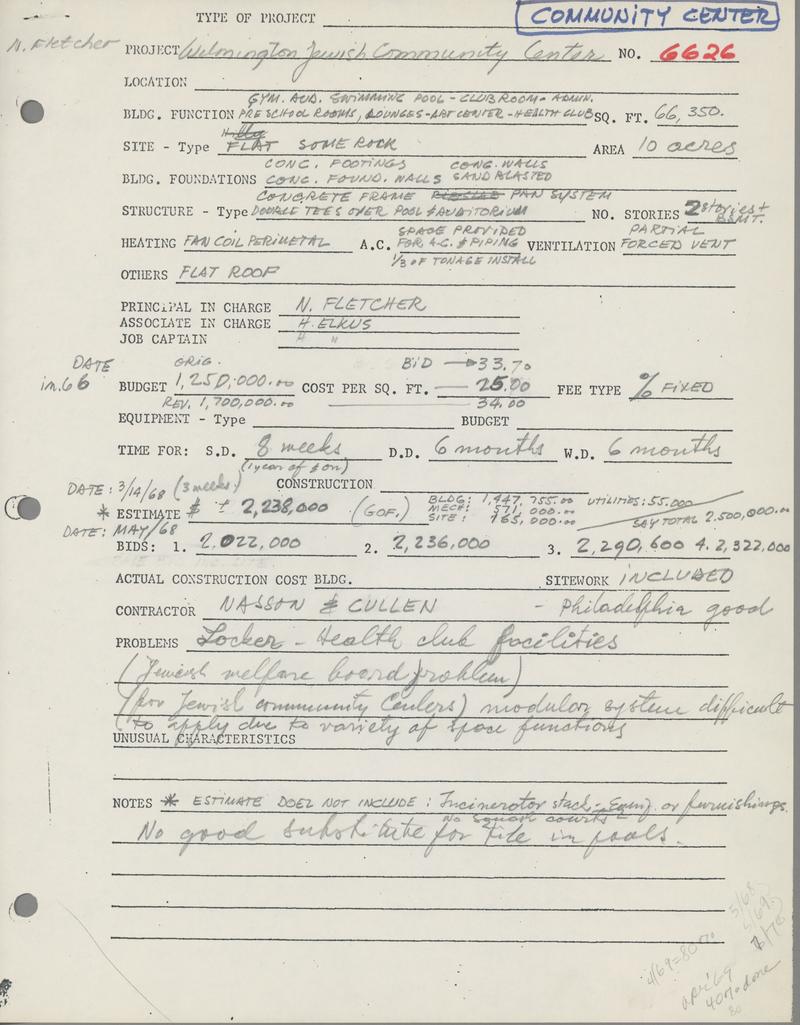 TYPE OF PROJECT COMMUNITY CENTER
N. Fletcher
PROJECT Wilmington Jewish Community Center NO. 6626
LOCATION
GYM. AUD. SWIMMING POOL - CLUB ROOM - ADMIN.
BLDG. FUNCTION PRE SCHOOL ROOMS, LOUNGES - ART CENTER - HEALTH CLUB SQ. FT. 66,350.
SITE - Type FLAT SOME ROCK AREA 10 acres
CONC. FOOTINGS CONC. WALLS
BLDG. FOUNDATIONS CONC. FOUND. WALLS SAND BLASTED
CONCRETE FRAME PAN SYSTEM
STRUCTURE - Type DOUBLE TEES OVER POOL & AUDITORIUM NO. STORIES 2 stories + BSMT.
SPACE PROVIDED PARTIAL
HEATING FAN COIL PERIMETAL A.C. FOR A.C. & PIPING VENTILATION FORCED VENT
1/3 OF TONAGE INSTALL
OTHERS FLAT ROOF
PRINCIPAL IN CHARGE N. FLETCHER
ASSOCIATE IN CHARGE H. ELKUS
JOB CAPTAIN " "
DATE ORIG. BID → 33.70
in. 66 BUDGET 1,250,000.00 COST PER SQ. FT. — 25.00 FEE TYPE % FIXED
REV. 1,700,000.00 — 34.00
EQUIPMENT - Type BUDGET
TIME FOR: S.D. 8 weeks D.D. 6 months W.D. 6 months
(1 year of & on)
DATE: 3/14/68 (3 weeks) CONSTRUCTION
* ESTIMATE $ ± 2,238,000 (GOF.) BLDG: 1,447,755.00 UTILITIES: 55,000
MECH: 571,000.00
SITE: 165,000.00 SAY TOTAL 2,500,000.00
DATE: MAY/68
BIDS: 1. 2,022,000 2. 2,236,000 3. 2,290,600 4. 2,322,000
ACTUAL CONSTRUCTION COST BLDG. SITEWORK INCLUDED
CONTRACTOR NASSON & CULLEN - Philadelphia good
PROBLEMS Locker - Health club facilities
(Jewish welfare board problem)
(for Jewish community Centers) modular system difficult
(to apply due to variety of space functions
UNUSUAL CHARACTERISTICS
NOTES * ESTIMATE DOES NOT INCLUDE: Incinerator stack - Equip. or furnishings.
No squash courts
No good substitute for tile in pools.
5/68
5/69
4/69 = 80%
apr '69
40% done
80